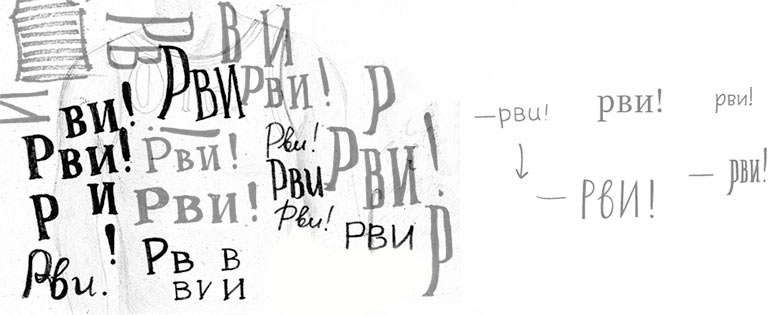 РВ
В И
И
РВИ
Рви!
ви!
Р
Рви!
Рви!
Рви!
РВИ!
Рви
Р И
!
Рви!
Рви!
Р
РВИ
Рви.
Рв в
ви и
—рви!
рви!
рви!
— РВИ!
— рви!